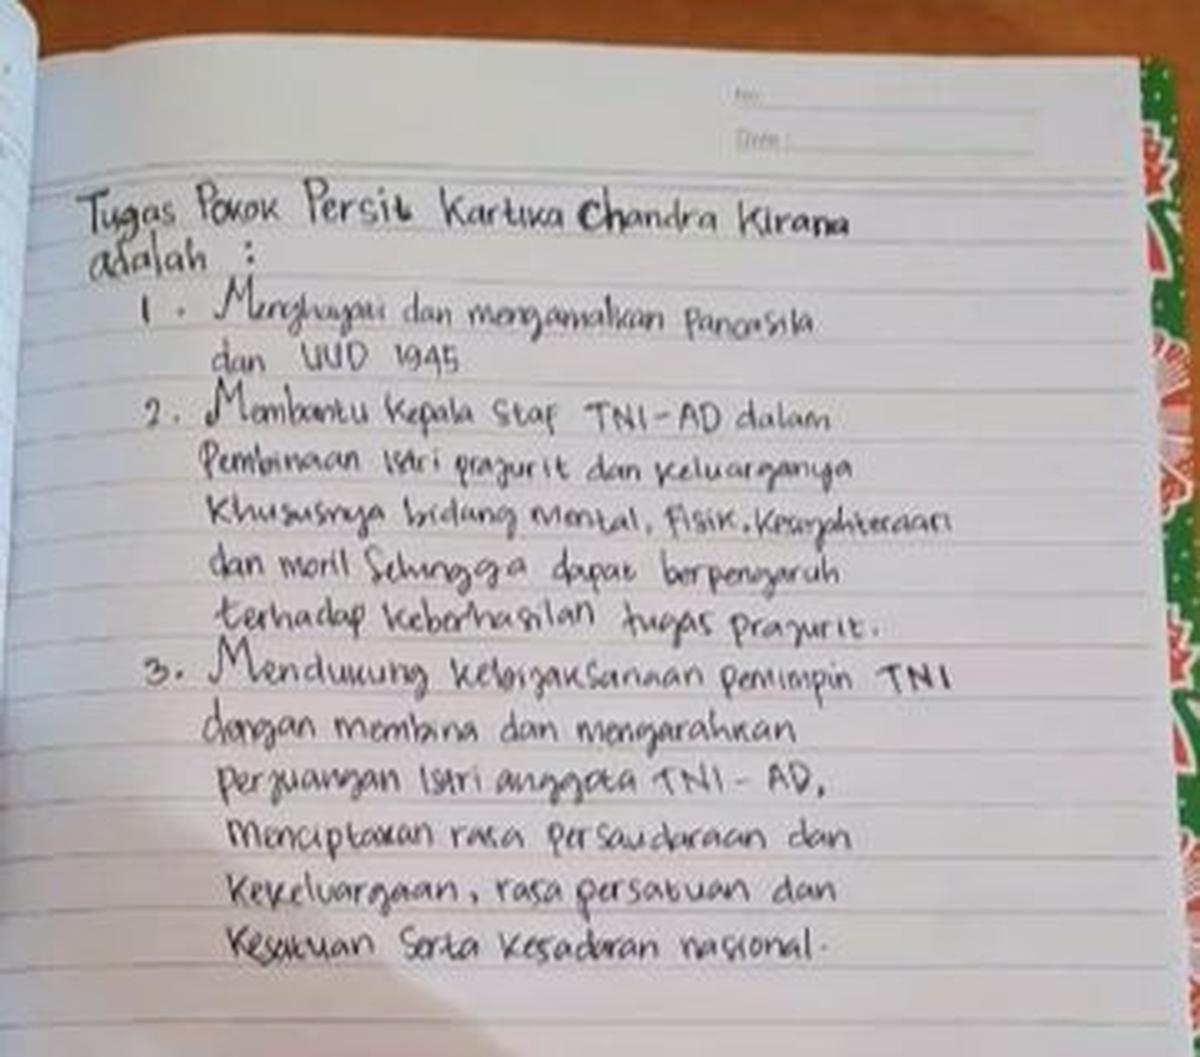 No.
Date :
Tugas Pokok Persit Kartika Chandra Kirana
adalah :
1. Menghayati dan mengamalkan Pancasila
dan UUD 1945
2. Membantu Kepala Staf TNI-AD dalam
Pembinaan Istri prajurit dan keluarganya
Khususnya bidang mental, fisik, Kesejahteraan
dan moril Sehingga dapat berpengaruh
terhadap keberhasilan tugas prajurit.
3. Mendukung kebijaksanaan pemimpin TNI
dengan membina dan mengarahkan
perjuangan Istri anggota TNI - AD,
Menciptakan rasa persaudaraan dan
Kekeluargaan, rasa persatuan dan
Kesatuan Serta kesadaran nasional.